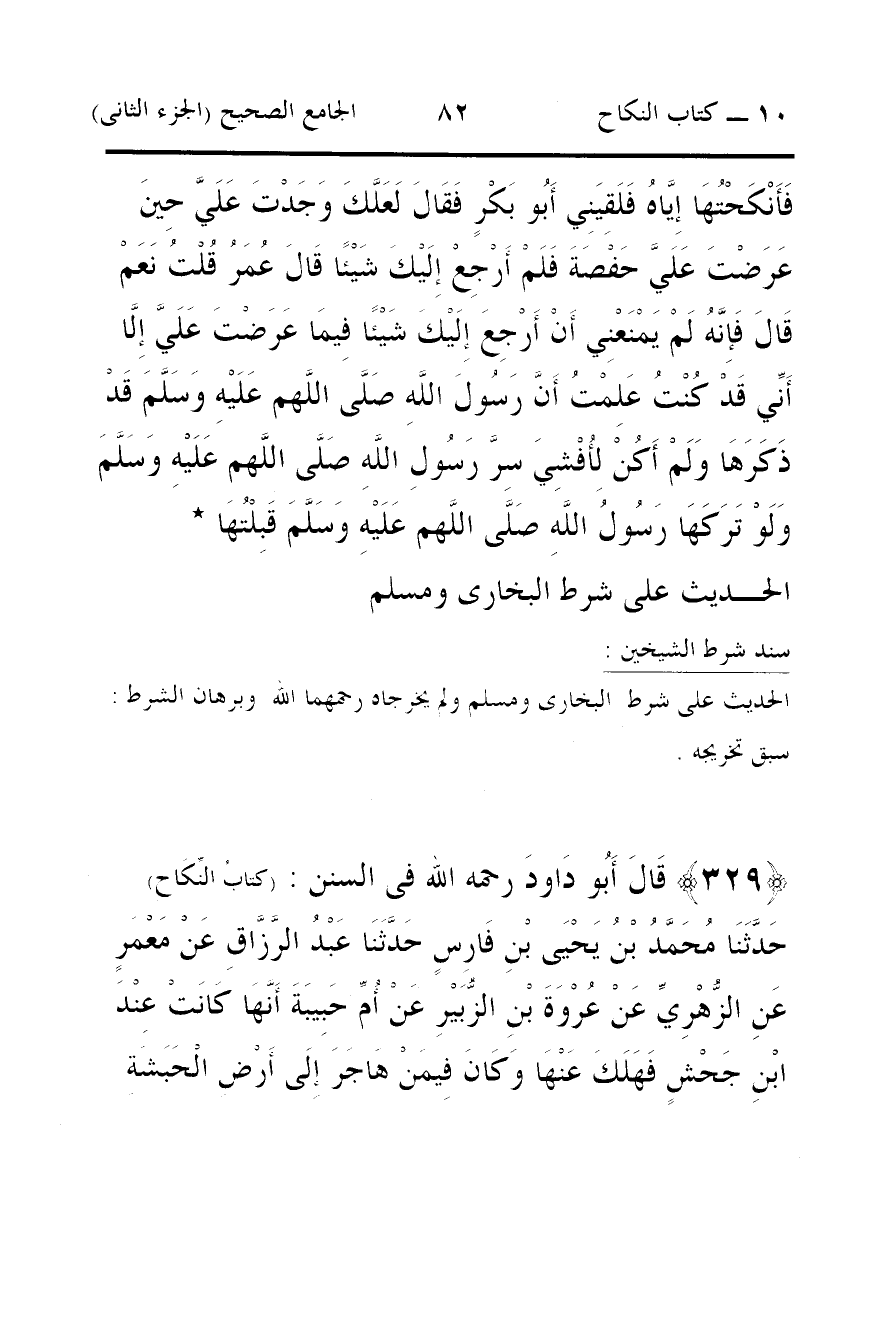 ١٠ ــ كتاب النكاح ٨٢ الجامع الصحيح (الجزء الثانى)
فَأَنْكَحْتُهَا إِيَّاهُ فَلَقِيَنِي أَبُو بَكْرٍ فَقَالَ لَعَلَّكَ وَجَدْتَ عَلَيَّ حِينَ
عَرَضْتَ عَلَيَّ حَفْصَةَ فَلَمْ أَرْجِعْ إِلَيْكَ شَيْئًا قَالَ عُمَرُ قُلْتُ نَعَمْ
قَالَ فَإِنَّهُ لَمْ يَمْنَعْنِي أَنْ أَرْجِعَ إِلَيْكَ شَيْئًا فِيمَا عَرَضْتَ عَلَيَّ إِلَّا
أَنِّي قَدْ كُنْتُ عَلِمْتُ أَنَّ رَسُولَ اللَّهِ صَلَّى اللَّهم عَلَيْهِ وَسَلَّمَ قَدْ
ذَكَرَهَا وَلَمْ أَكُنْ لِأُفْشِيَ سِرَّ رَسُولِ اللَّهِ صَلَّى اللَّهم عَلَيْهِ وَسَلَّمَ
وَلَوْ تَرَكَهَا رَسُولُ اللَّهِ صَلَّى اللَّهم عَلَيْهِ وَسَلَّمَ قَبِلْتُهَا *
الحـــديث على شرط البخارى ومسلم
سند شرط الشيخين :
الحديث على شرط البخارى ومسلم ولم يخرجاه رحمهما الله وبرهان الشرط :
سبق تخريجه .
﴿٣٢٩﴾ قَالَ أَبُو دَاودَ رحمه الله فى السنن : (كتابُ النِّكَاح)
حَدَّثَنَا مُحَمَّدُ بْنُ يَحْيَى بْنِ فَارِسٍ حَدَّثَنَا عَبْدُ الرَّزَّاقِ عَنْ مَعْمَرٍ
عَنِ الزُّهْرِيِّ عَنْ عُرْوَةَ بْنِ الزُّبَيْرِ عَنْ أُمِّ حَبِيبَةَ أَنَّهَا كَانَتْ عِنْدَ
ابْنِ جَحْشٍ فَهَلَكَ عَنْهَا وَكَانَ فِيمَنْ هَاجَرَ إِلَى أَرْضِ الْحَبَشَةِ